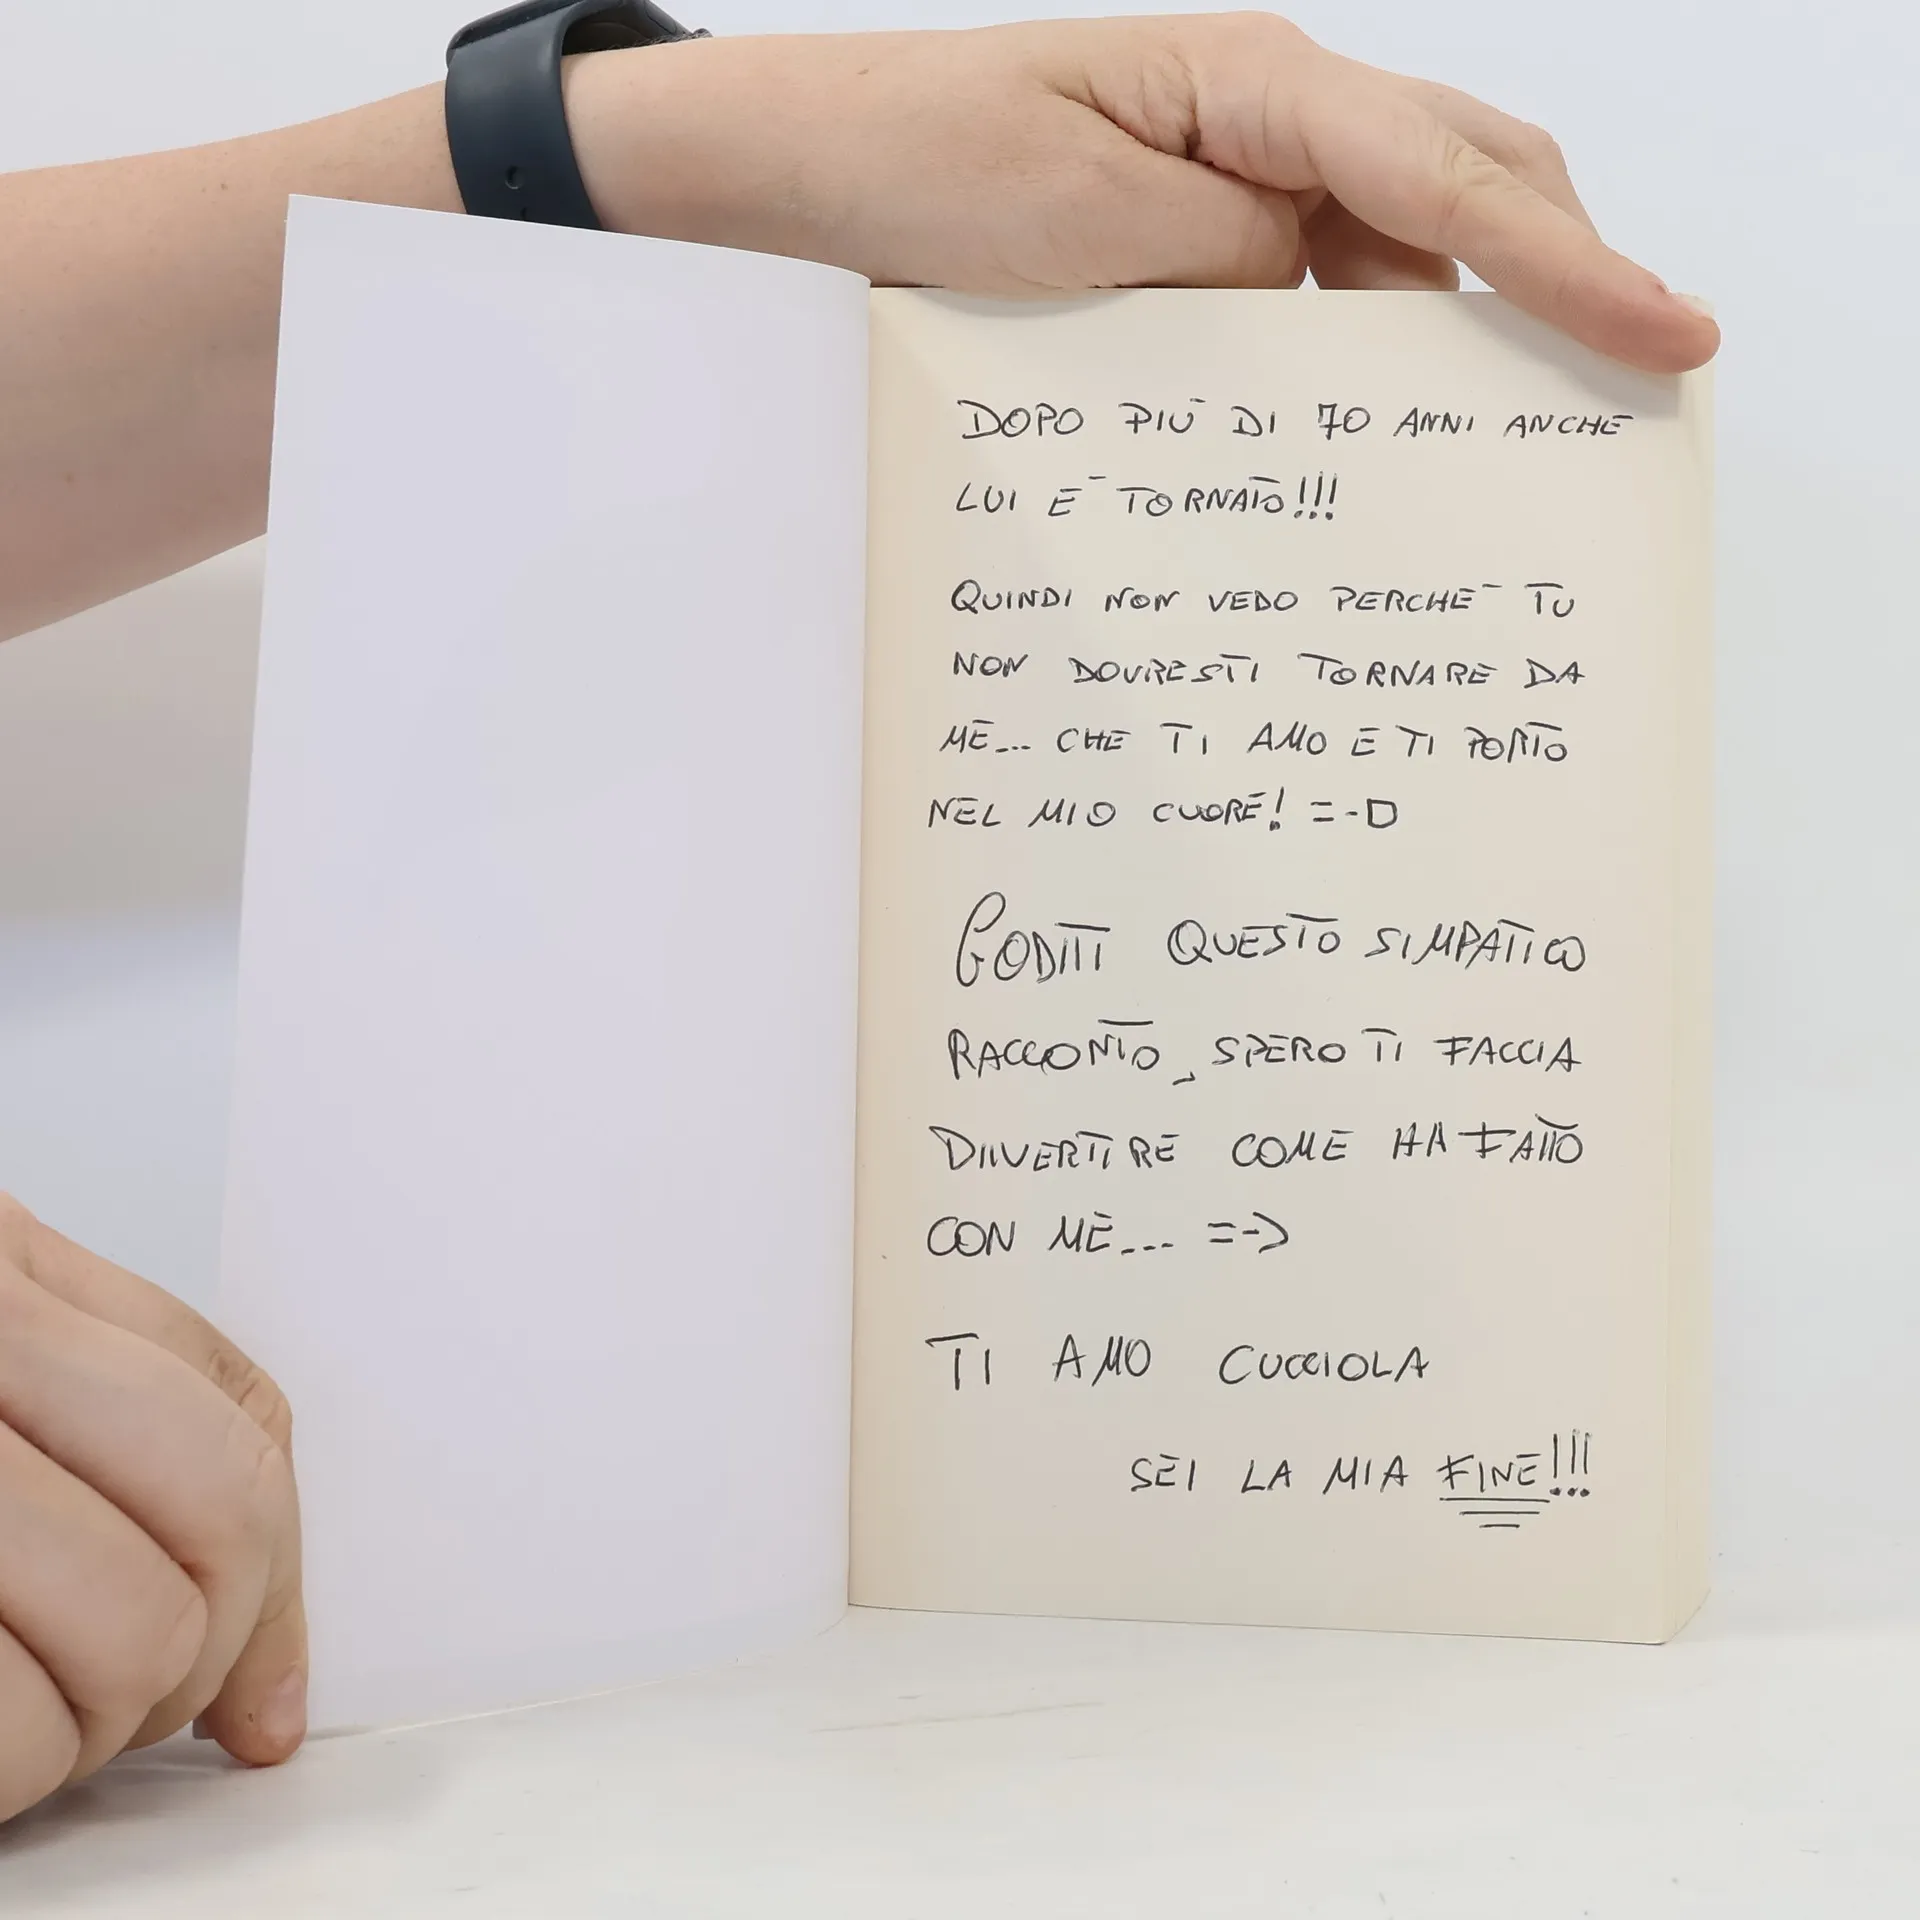 DOPO PIÙ DI 70 ANNI ANCHE
LUI È TORNATO!!!
QUINDI NON VEDO PERCHÉ TU
NON DOVRESTI TORNARE DA
ME... CHE TI AMO E TI PORTO
NEL MIO CUORE! =-D
GODITI QUESTO SIMPATICO
RACCONTO, SPERO TI FACCIA
DIIVERTIRE COME HA FATTO
CON ME... =-)
TI AMO CUCCIOLA
SEI LA MIA FINE!!!